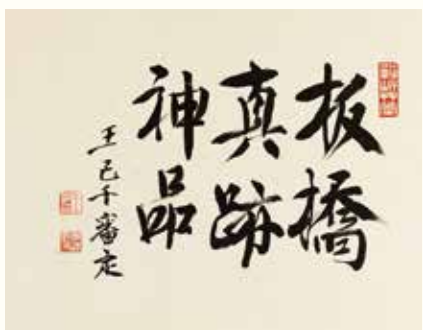 板橋
真跡
神品
王己千審定